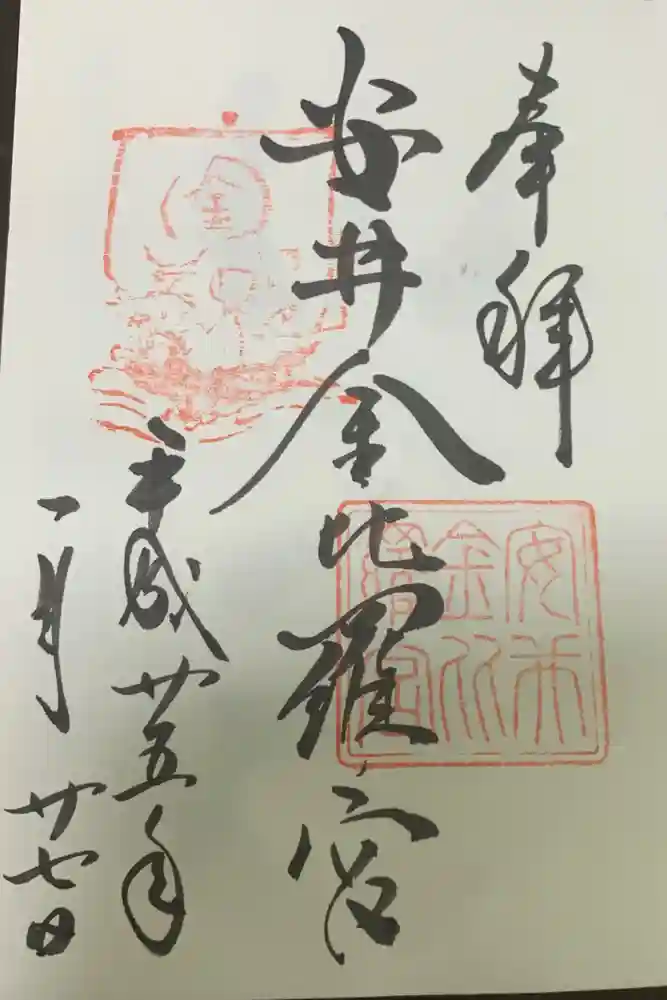 奉拝
安井金比羅宮
平成廿五年
一月廿七日
金
安井金比羅宮